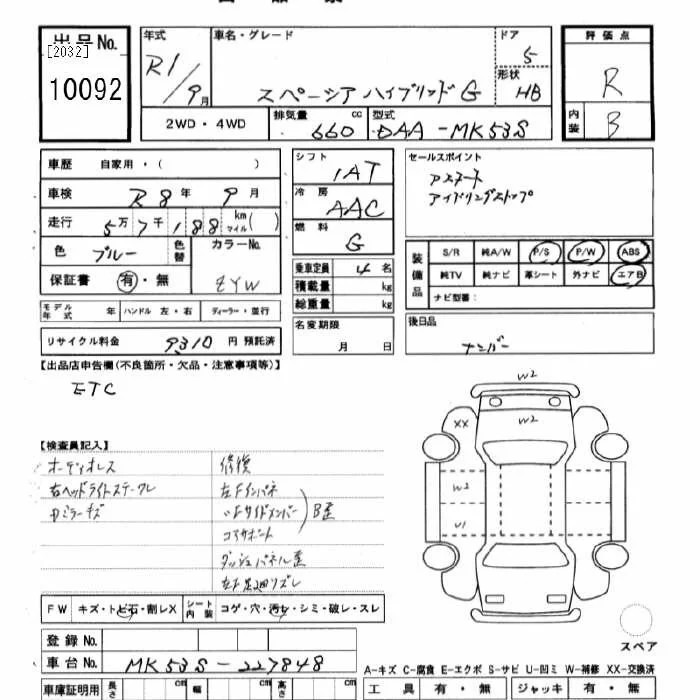 出品No.
[2032]
10092
年式
R1/9月
車名・グレード
スペーシア ハイブリッド G
ドア
5
形状
HB
評価点
R
内装
B
2WD・4WD
排気量
660 cc
型式
DAA-MK53S
車歴 自家用・( )
車検 R8年 9月
走行 5万7千188 km マイル( )
色 ブルー
色替
カラーNo.
ZYW
保証書 有・無
シフト
1AT
冷房
AAC
燃料
G
乗車定員 4名
積載量 kg
総重量 kg
セールスポイント
アスマート
アイドリングストップ
装備品
S/R 純A/W P/S P/W ABS
純TV 純ナビ 革シート 外ナビ エアB
ナビ型番:
モデル年式 年
ハンドル 左・右
ディーラー・並行
リサイクル料金 9310円 預託済
名変期限
月 日
後日品
ナンバー
【出品店申告欄(不良箇所・欠品・注意事項等)】
ETC
【検査員記入】
オーディオレス
右ヘッドライトステークレ
ミラーキズ
修復
左Fインパネ
〃Fサイドメンバー
コアサポート
B歪
ダッシュパネル歪
左F足廻りズレ
W2
W2
XX
W2
U1
FW キズ・トビ石・割レX
シート内装 コゲ・穴・汚レ・シミ・破レ・スレ
スペア
登録No.
車台No. MK53S-227848
A-キズ C-腐食 E-エクボ S-サビ U-凹ミ W-補修 XX-交換済
車庫証明用
長さ cm
幅 cm
高さ cm
工具 有・無
ジャッキ 有・無